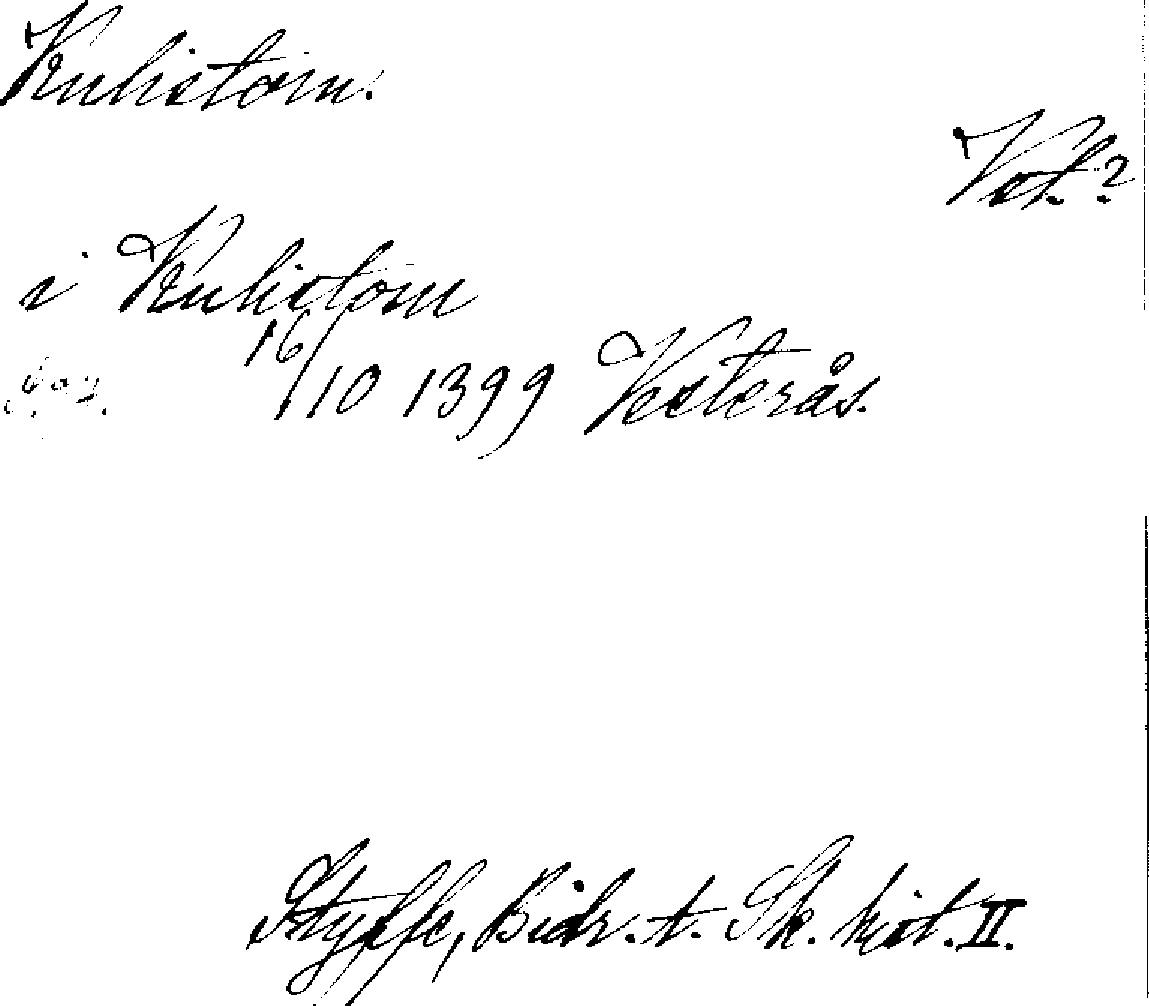 Kuhistom.
Vst.?
i Kuhistom
16/10 1399 Vesterås.
Styffe, Bidr. t. Sk. hist. II.